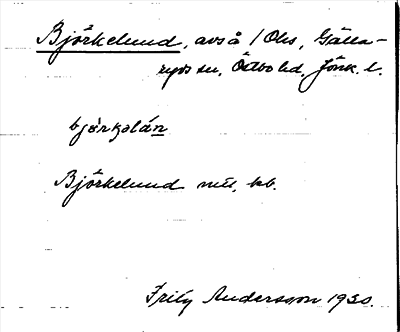 Björkelund, avs å 1 Ohs, Gälla-
ryds sn, Östbo hd, Jönk. l.
björkəlán
Björkelund
Fritz Andersson 1930.